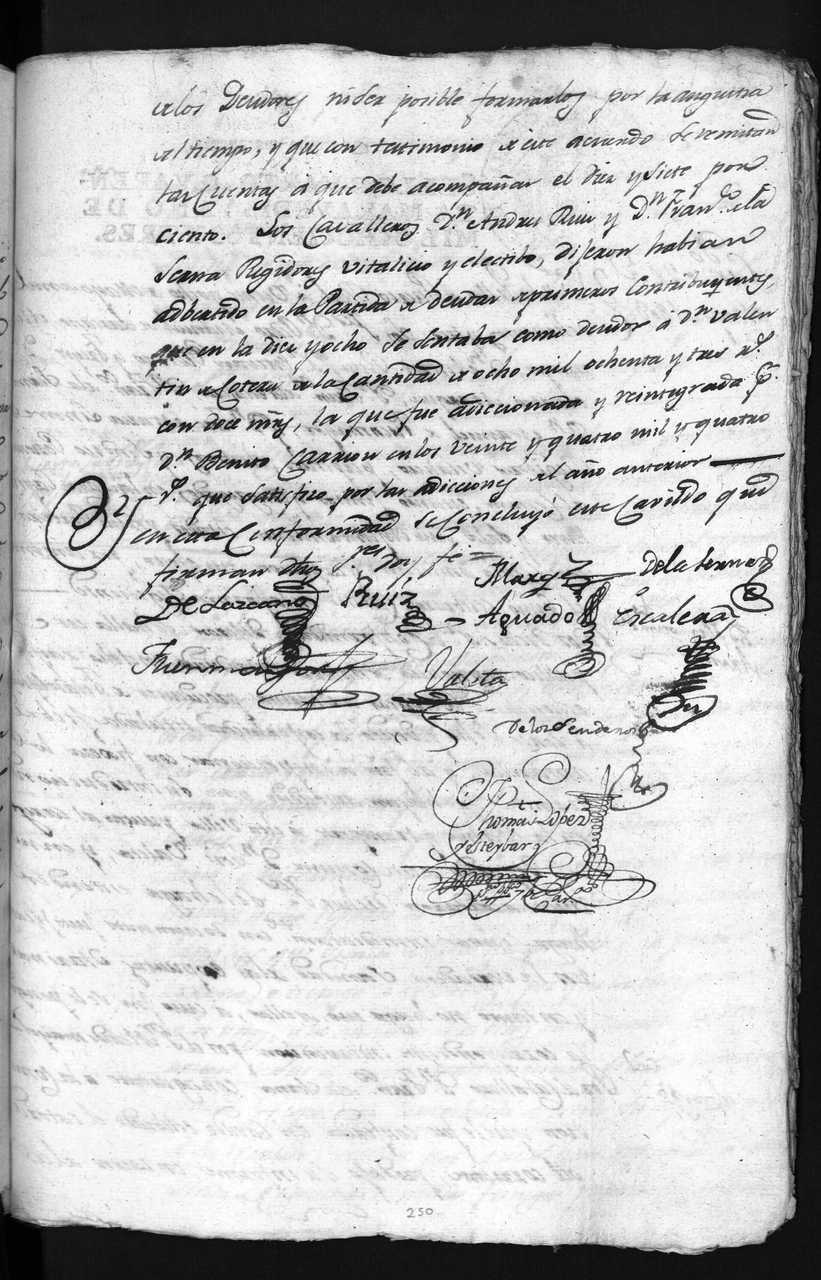 a los Deudores ni ser posible formarlos por la angustia
del tiempo, y que con testimonio de este acuerdo se remitan
las Cuentas a que debe acompañar el diez y siete por
ciento. Los Cavalleros Dn. Andres Ruiz y Dn. Franco. de la
Serna Regidores vitalicio y electibo, dijeron habian
adbertido en la Partida de deudas de primeros Contribuyentes,
que en la diez y ocho se sentaba como deudor á Dn. Valen
tin de Cotera de la Cantidad de ocho mil ochenta y tres rs.
con doce mrs, la que fue adiccionada y reintegrada pr.
Dn. Benito Carrion en los veinte y quatro mil y quatro
rs. que satisfizo por las adicciones del año anterior
en esta Conformidad se Concluyó este Cavildo que
firman dhos ses. doy fe =
De Lozcano Ruiz Marqz De la Serna
Aguado Escalera
Valsta
De los Senderos
Thomas López
de Steybar
250